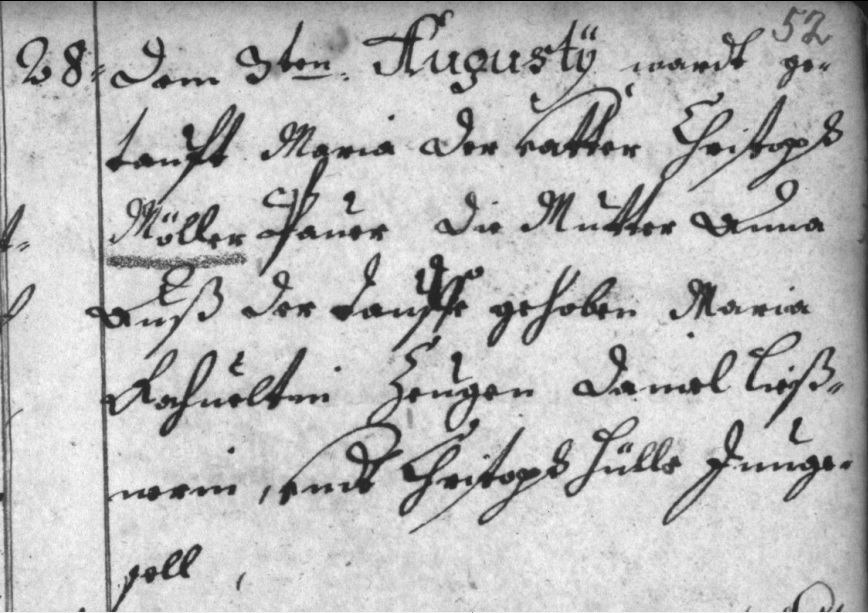 52
28. Dem 3ten. Augustÿ wardt ge-
taufft Maria der vatter Christoph
Möller Pauer die Mutter Anna
Auß der tauffe gehoben Maria
Zeugen Daniel Ließ-
nerin, vndt Christoph Hülle Junge-
sell